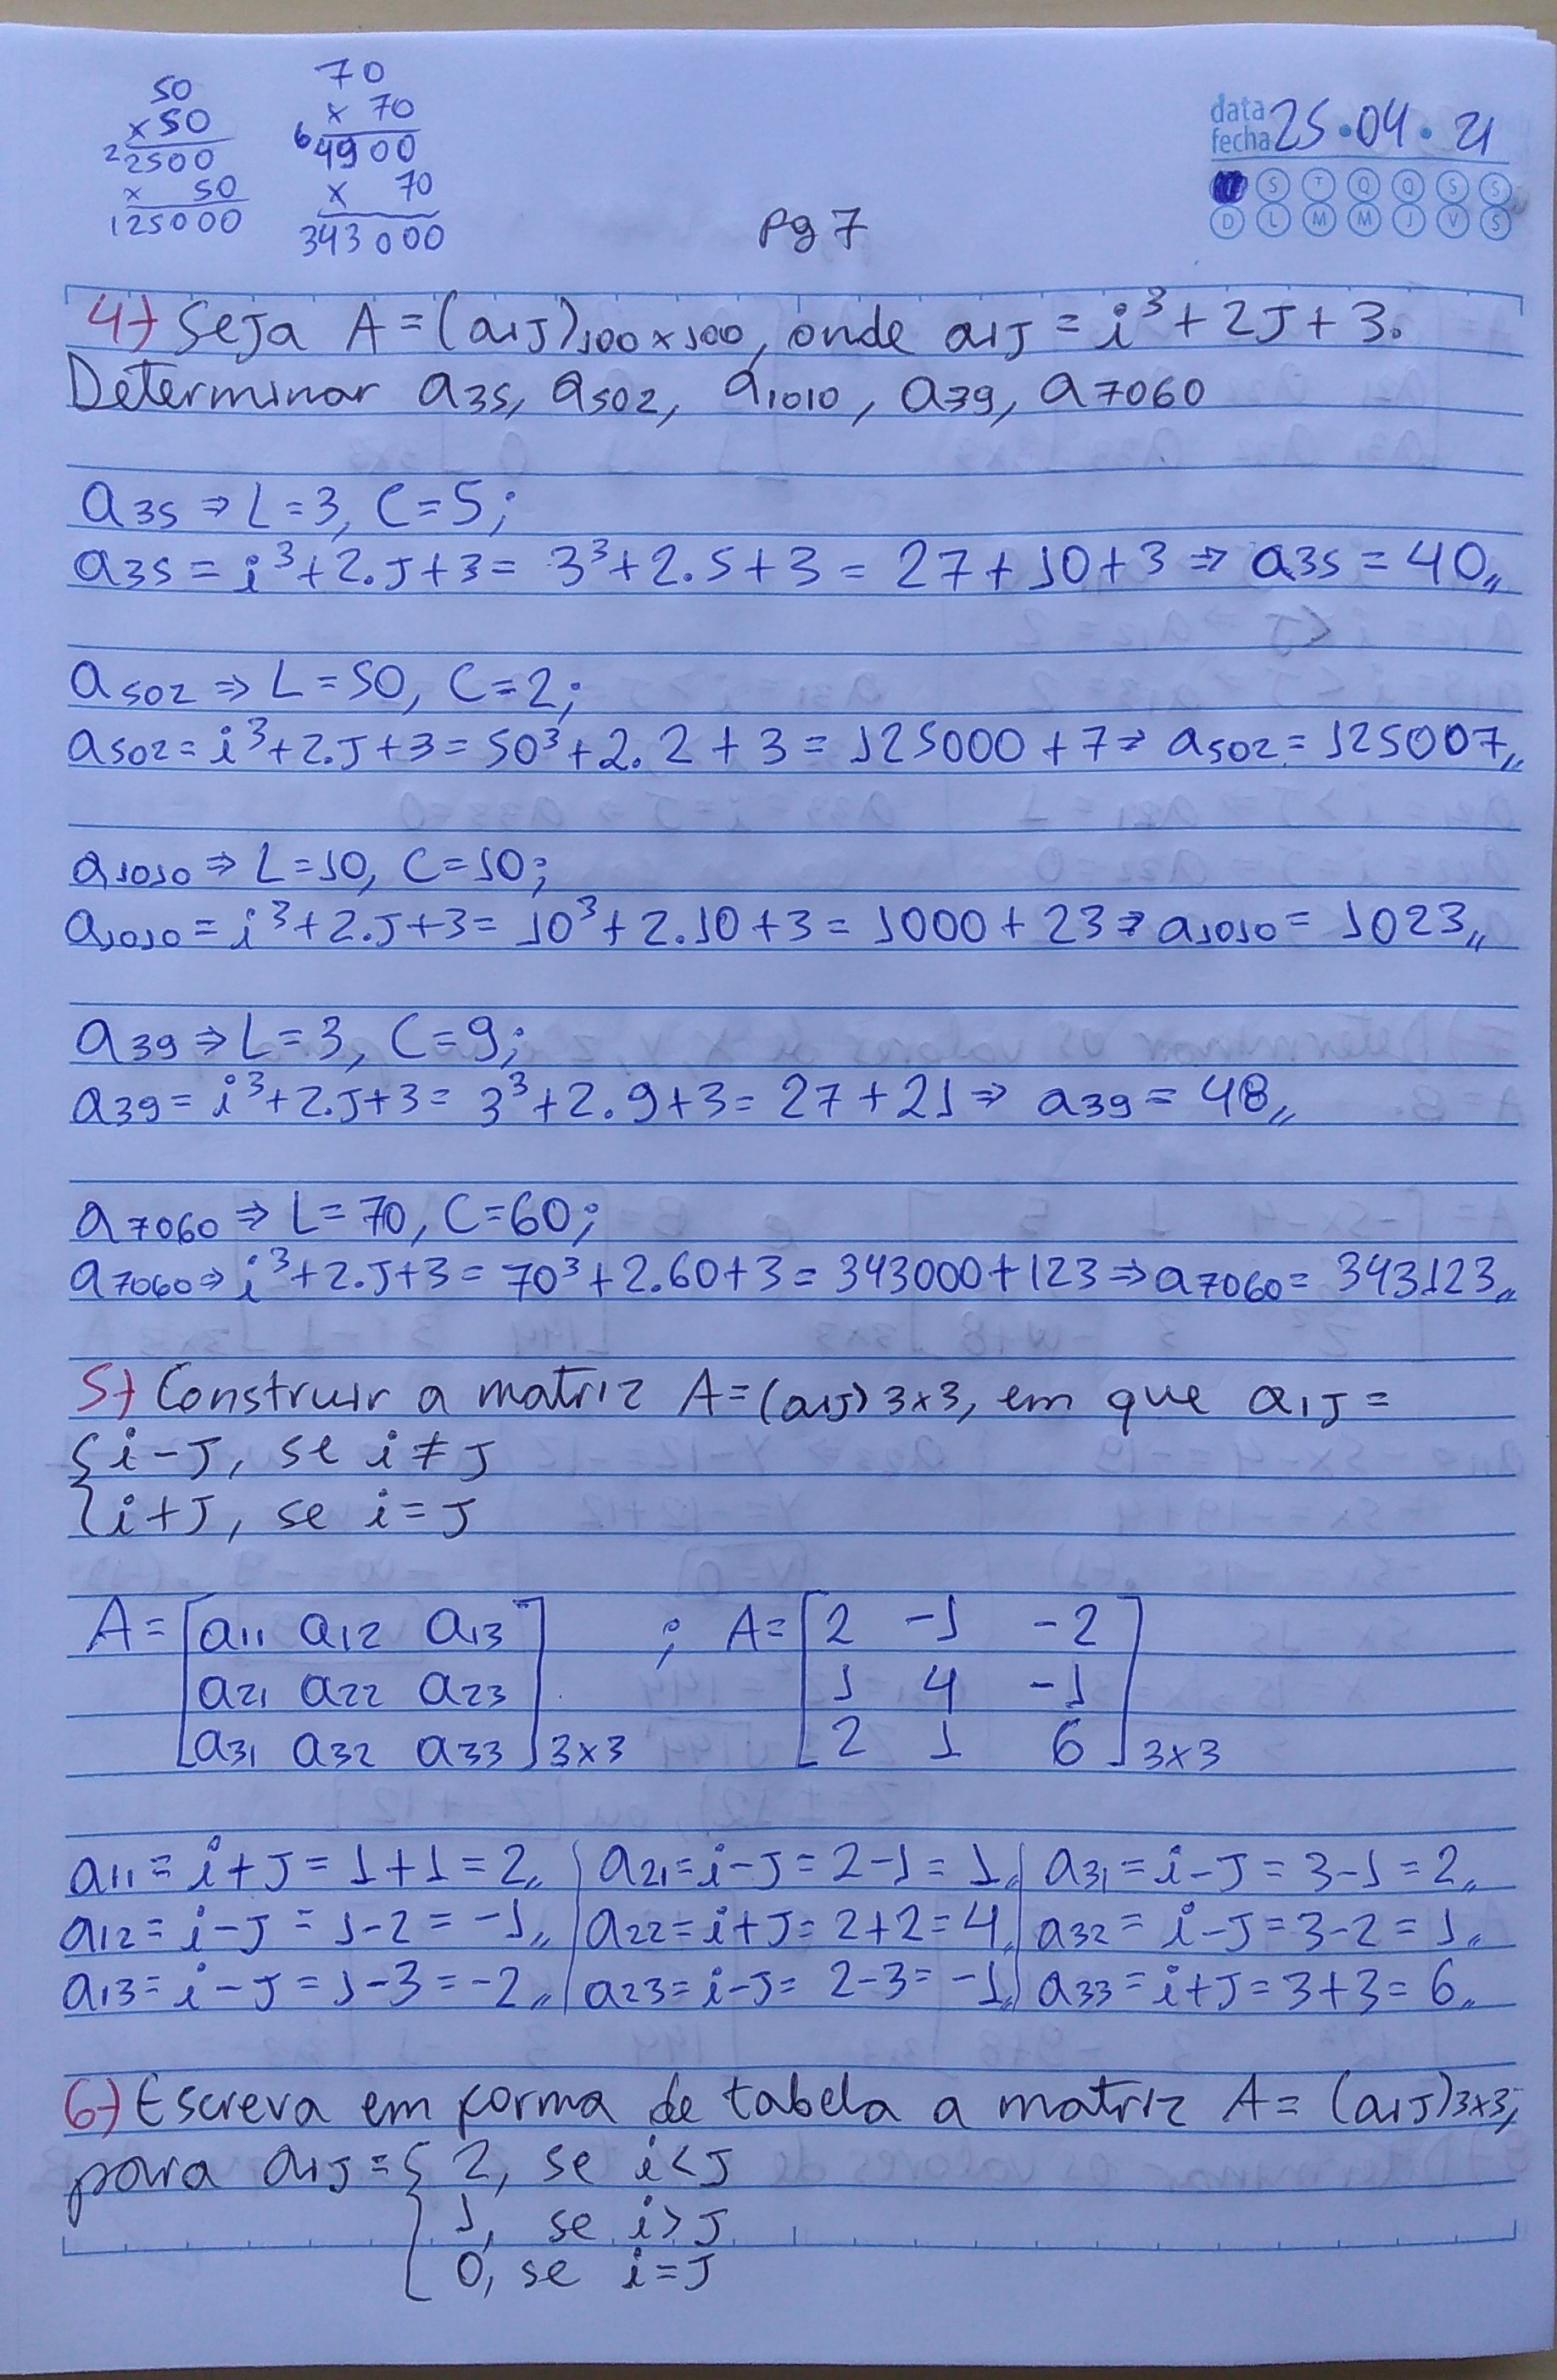 50
x 50
2 2500
x 50
125000
70
x 70
6 4900
x 70
343000
data
fecha 25.04.21
S T Q Q S S
D L M M J V S
pg 7
4) Seja A = (aij)100x100, onde aij = i³ + 2j + 3.
Determinar a35, a502, a1010, a39, a7060
a35 ⇒ L=3, C=5;
a35 = i³+2.j+3 = 3³+2.5+3 = 27+10+3 ⇒ a35 = 40,,
a502 ⇒ L=50, C=2;
a502 = i³+2.j+3 = 50³+2.2+3 = 125000+7 ⇒ a502 = 125007,,
a1010 ⇒ L=10, C=10;
a1010 = i³+2.j+3 = 10³+2.10+3 = 1000+23 ⇒ a1010 = 1023,,
a39 ⇒ L=3, C=9;
a39 = i³+2.j+3 = 3³+2.9+3 = 27+21 ⇒ a39 = 48,,
a7060 ⇒ L=70, C=60;
a7060 ⇒ i³+2.j+3 = 70³+2.60+3 = 343000+123 ⇒ a7060 = 343123,,
5) Construir a matriz A=(aij)3x3, em que aij =
{ i-j, se i ≠ j
{ i+j, se i = j
A = [a11 a12 a13 ; A = [2 -1 -2
a21 a22 a23 1 4 -1
a31 a32 a33]3x3 2 1 6]3x3
a11 = i+j = 1+1 = 2,, | a21 = i-j = 2-1 = 1,, | a31 = i-j = 3-1 = 2,,
a12 = i-j = 1-2 = -1,, | a22 = i+j = 2+2 = 4,, | a32 = i-j = 3-2 = 1,,
a13 = i-j = 1-3 = -2,, | a23 = i-j = 2-3 = -1,, | a33 = i+j = 3+3 = 6,,
6) Escreva em forma de tabela a matriz A = (aij)3x3,
para aij = { 2, se i < j
1, se i > j
0, se i = j